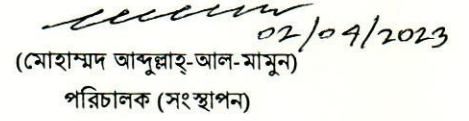 02/04/2023
(মোহাম্মদ আব্দুল্লাহ্-আল-মামুন)
পরিচালক (সংস্থাপন)